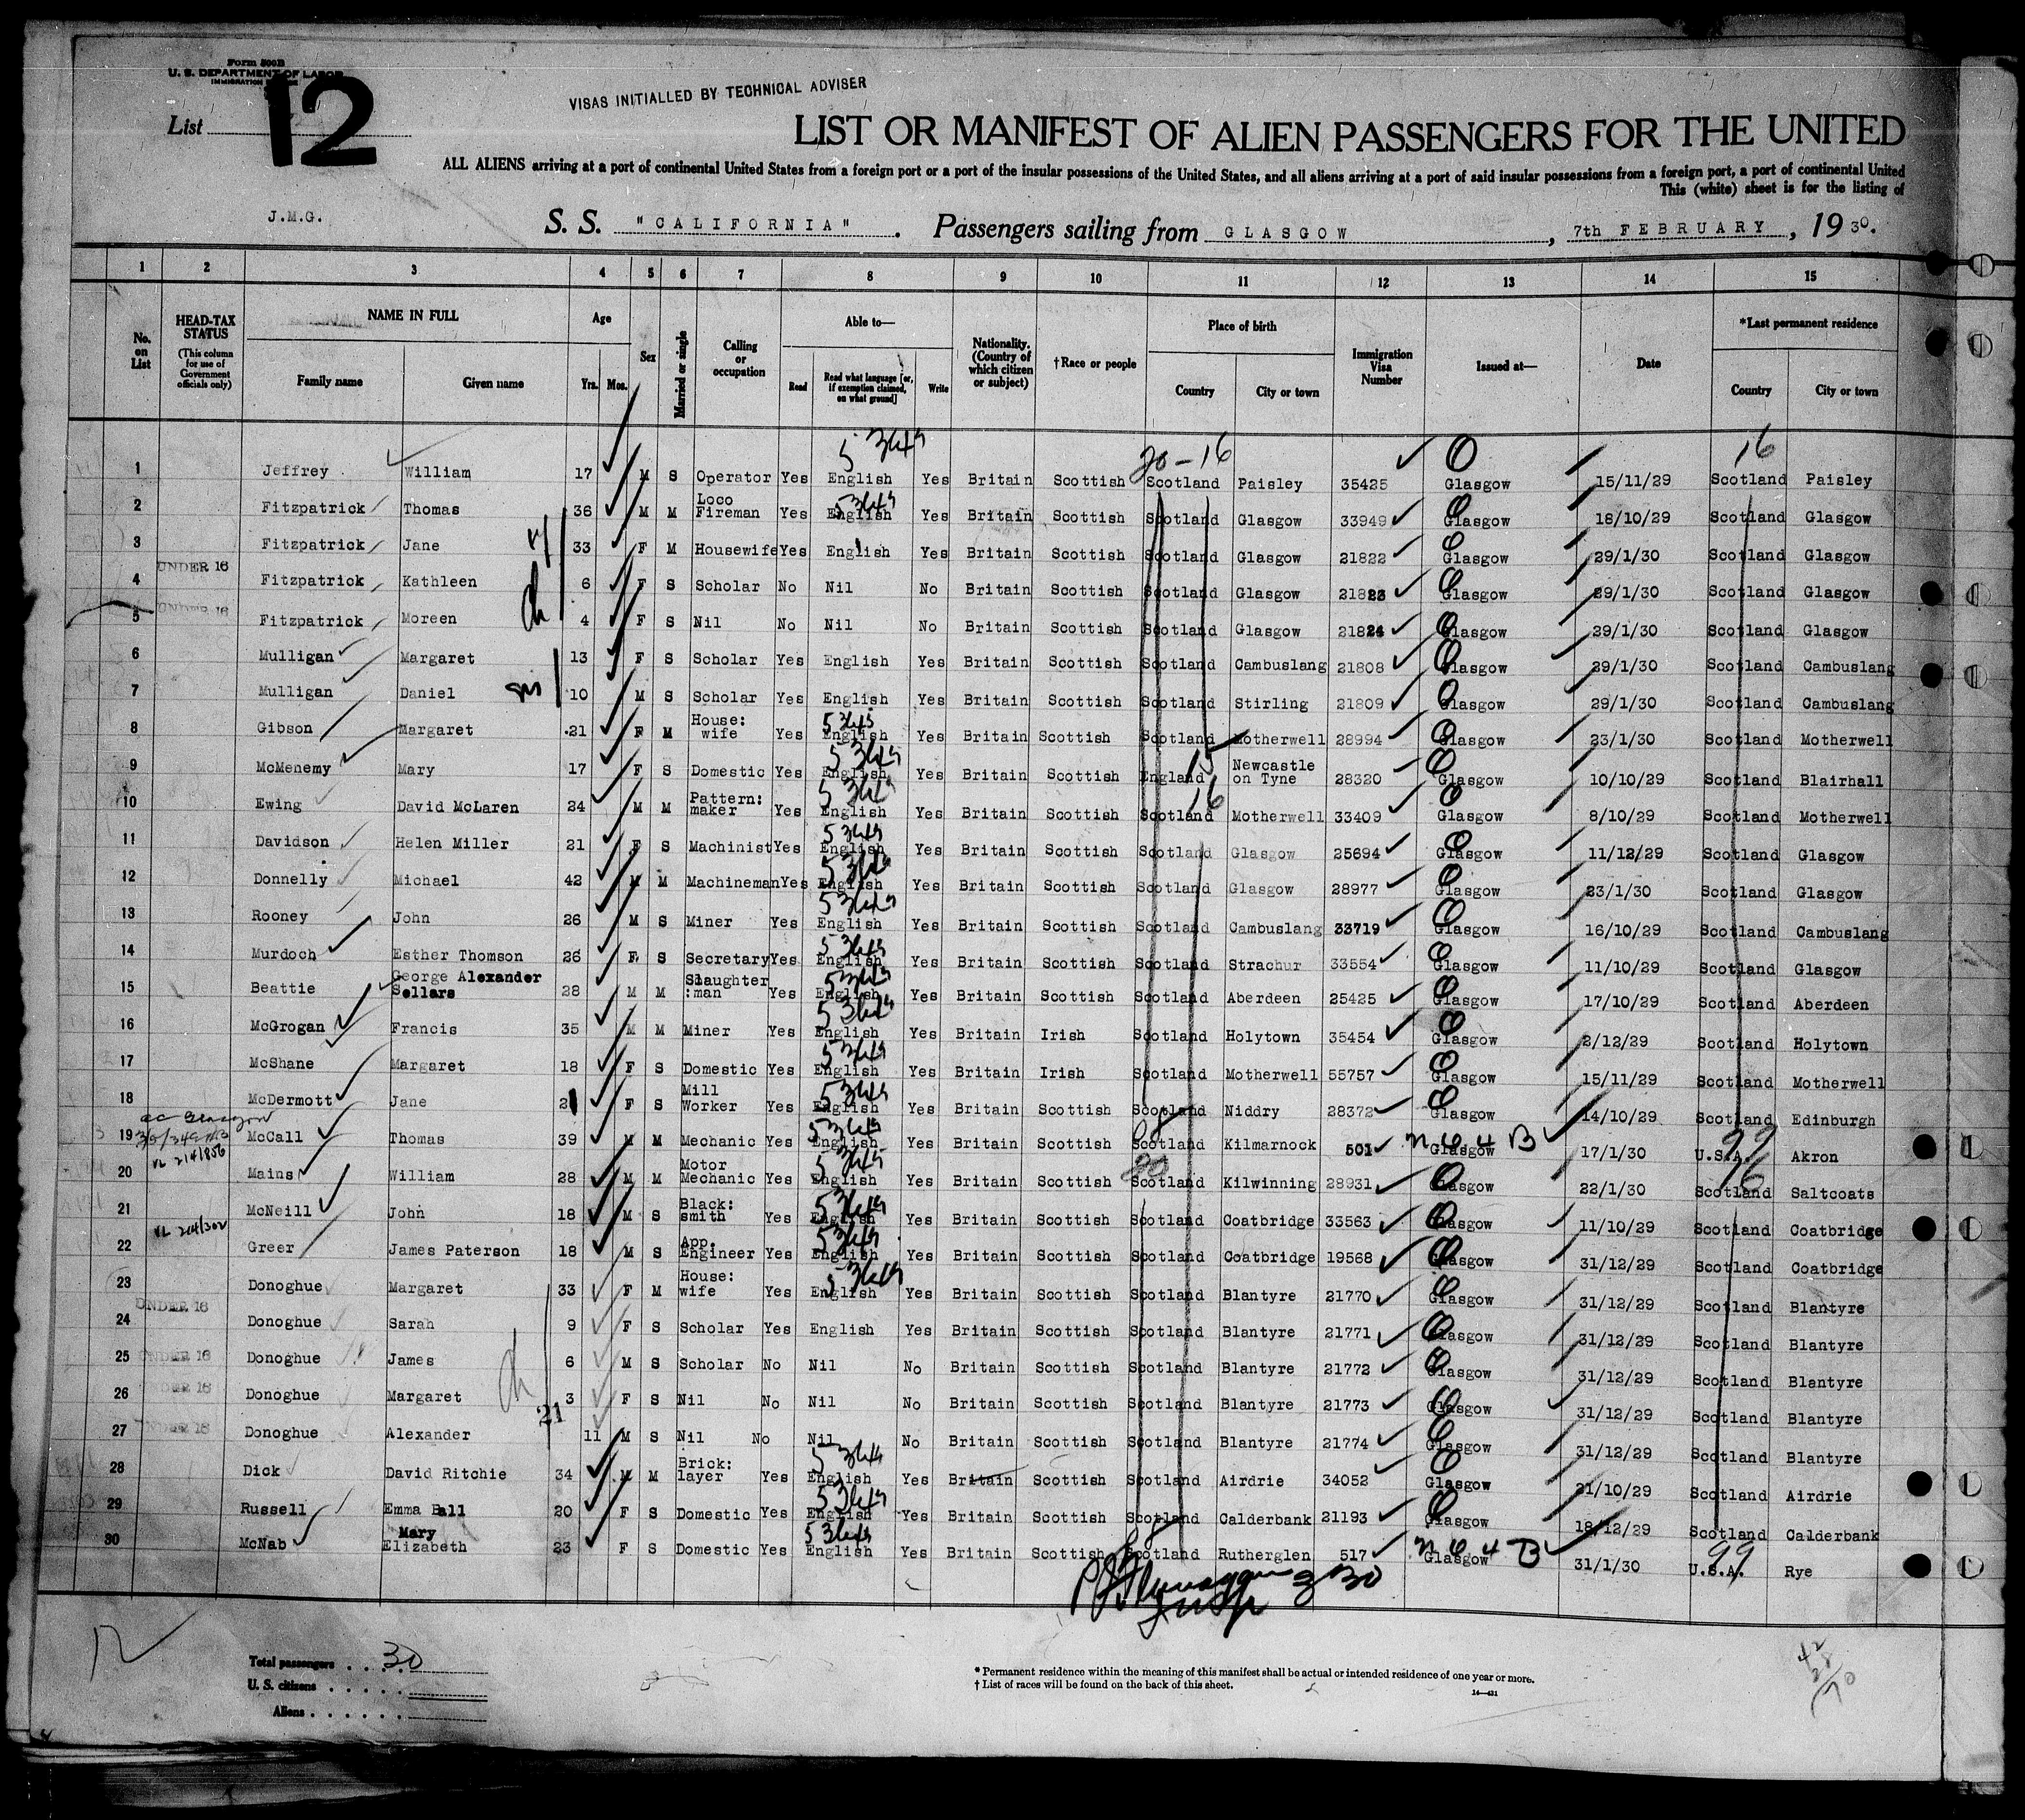 Form 500B
U. S. DEPARTMENT OF LABOR
IMMIGRATION
List 12
VISAS INITIALLED BY TECHNICAL ADVISER
LIST OR MANIFEST OF ALIEN PASSENGERS FOR THE UNITED
ALL ALIENS arriving at a port of continental United States from a foreign port or a port of the insular possessions of the United States, and all aliens arriving at a port of said insular possessions from a foreign port, a port of continental United
This (white) sheet is for the listing of
J.M.G.
S. S. "CALIFORNIA". Passengers sailing from GLASGOW, 7th FEBRUARY, 1930.
1 2 3 4 5 6 7 8 9 10 11 12 13 14 15
No. on List
HEAD-TAX STATUS (This column for use of Government officials only)
NAME IN FULL Family name Given name
Age Yrs. Mos.
Sex
Married or single
Calling or occupation
Able to— Read Read what language [or, if exemption claimed, on what ground] Write
Nationality. (Country of which citizen or subject)
†Race or people
Place of birth Country City or town
Immigration Visa Number
Issued at—
Date
*Last permanent residence Country City or town
20-16 16
1 Jeffrey William 17 M S Operator Yes English Yes Britain Scottish Scotland Paisley 35425 Glasgow 15/11/29 Scotland Paisley
2 Fitzpatrick Thomas 36 M M Loco Fireman Yes English Yes Britain Scottish Scotland Glasgow 33949 Glasgow 18/10/29 Scotland Glasgow
3 Fitzpatrick Jane 33 F M Housewife Yes English Yes Britain Scottish Scotland Glasgow 21822 Glasgow 29/1/30 Scotland Glasgow
4 UNDER 16 Fitzpatrick Kathleen 6 F S Scholar No Nil No Britain Scottish Scotland Glasgow 21823 Glasgow 29/1/30 Scotland Glasgow
5 UNDER 16 Fitzpatrick Moreen 4 F S Nil No Nil No Britain Scottish Scotland Glasgow 21824 Glasgow 29/1/30 Scotland Glasgow
6 Mulligan Margaret 13 F S Scholar Yes English Yes Britain Scottish Scotland Cambuslang 21808 Glasgow 29/1/30 Scotland Cambuslang
7 Mulligan Daniel 10 M S Scholar Yes English Yes Britain Scottish Scotland Stirling 21809 Glasgow 29/1/30 Scotland Cambuslang
8 Gibson Margaret 21 F M House: wife Yes English Yes Britain Scottish Scotland Motherwell 28994 Glasgow 23/1/30 Scotland Motherwell
9 McMenemy Mary 17 F S Domestic Yes English Yes Britain Scottish England 15 Newcastle on Tyne 28320 Glasgow 10/10/29 Scotland Blairhall
10 Ewing David McLaren 24 M M Pattern: maker Yes English Yes Britain Scottish Scotland 16 Motherwell 33409 Glasgow 8/10/29 Scotland Motherwell
11 Davidson Helen Miller 21 F S Machinist Yes English Yes Britain Scottish Scotland Glasgow 25694 Glasgow 11/12/29 Scotland Glasgow
12 Donnelly Michael 42 M M Machineman Yes English Yes Britain Scottish Scotland Glasgow 28977 Glasgow 23/1/30 Scotland Glasgow
13 Rooney John 26 M S Miner Yes English Yes Britain Scottish Scotland Cambuslang 33719 Glasgow 16/10/29 Scotland Cambuslang
14 Murdoch Esther Thomson 26 F S Secretary Yes English Yes Britain Scottish Scotland Strachur 33554 Glasgow 11/10/29 Scotland Glasgow
15 Beattie George Alexander Sellars 28 M M Slaughter :man Yes English Yes Britain Scottish Scotland Aberdeen 25425 Glasgow 17/10/29 Scotland Aberdeen
16 McGrogan Francis 35 M M Miner Yes English Yes Britain Irish Scotland Holytown 35454 Glasgow 2/12/29 Scotland Holytown
17 McShane Margaret 18 F S Domestic Yes English Yes Britain Irish Scotland Motherwell 55757 Glasgow 15/11/29 Scotland Motherwell
18 McDermott Jane 21 F S Mill Worker Yes English Yes Britain Scottish Scotland Niddry 28372 Glasgow 14/10/29 Scotland Edinburgh
19 McCall Thomas 39 M M Mechanic Yes English Yes Britain Scottish Scotland Kilmarnock 501 Glasgow 17/1/30 U.S.A. 99 Akron
20 Mains William 28 M M Motor Mechanic Yes English Yes Britain Scottish Scotland Kilwinning 28931 Glasgow 22/1/30 Scotland 16 Saltcoats
21 McNeill John 18 M S Black: smith Yes English Yes Britain Scottish Scotland Coatbridge 33563 Glasgow 11/10/29 Scotland Coatbridge
22 Greer James Paterson 18 M S App. Engineer Yes English Yes Britain Scottish Scotland Coatbridge 19568 Glasgow 31/12/29 Scotland Coatbridge
23 Donoghue Margaret 33 F M House: wife Yes English Yes Britain Scottish Scotland Blantyre 21770 Glasgow 31/12/29 Scotland Blantyre
24 UNDER 16 Donoghue Sarah 9 F S Scholar Yes English Yes Britain Scottish Scotland Blantyre 21771 Glasgow 31/12/29 Scotland Blantyre
25 UNDER 16 Donoghue James 6 M S Scholar No Nil No Britain Scottish Scotland Blantyre 21772 Glasgow 31/12/29 Scotland Blantyre
26 UNDER 16 Donoghue Margaret 3 F S Nil No Nil No Britain Scottish Scotland Blantyre 21773 Glasgow 31/12/29 Scotland Blantyre
27 UNDER 16 Donoghue Alexander 11 M S Nil No Nil No Britain Scottish Scotland Blantyre 21774 Glasgow 31/12/29 Scotland Blantyre
28 Dick David Ritchie 34 M M Brick: layer Yes English Yes Britain Scottish Scotland Airdrie 34052 Glasgow 21/10/29 Scotland Airdrie
29 Russell Emma Ball 20 F S Domestic Yes English Yes Britain Scottish Scotland Calderbank 21193 Glasgow 18/12/29 Scotland Calderbank
30 McNab Mary Elizabeth 23 F S Domestic Yes English Yes Britain Scottish Scotland Rutherglen 517 Glasgow 31/1/30 U.S.A. 99 Rye
Total passengers 30
U. S. citizens
Aliens
* Permanent residence within the meaning of this manifest shall be actual or intended residence of one year or more.
† List of races will be found on the back of this sheet.
14—421